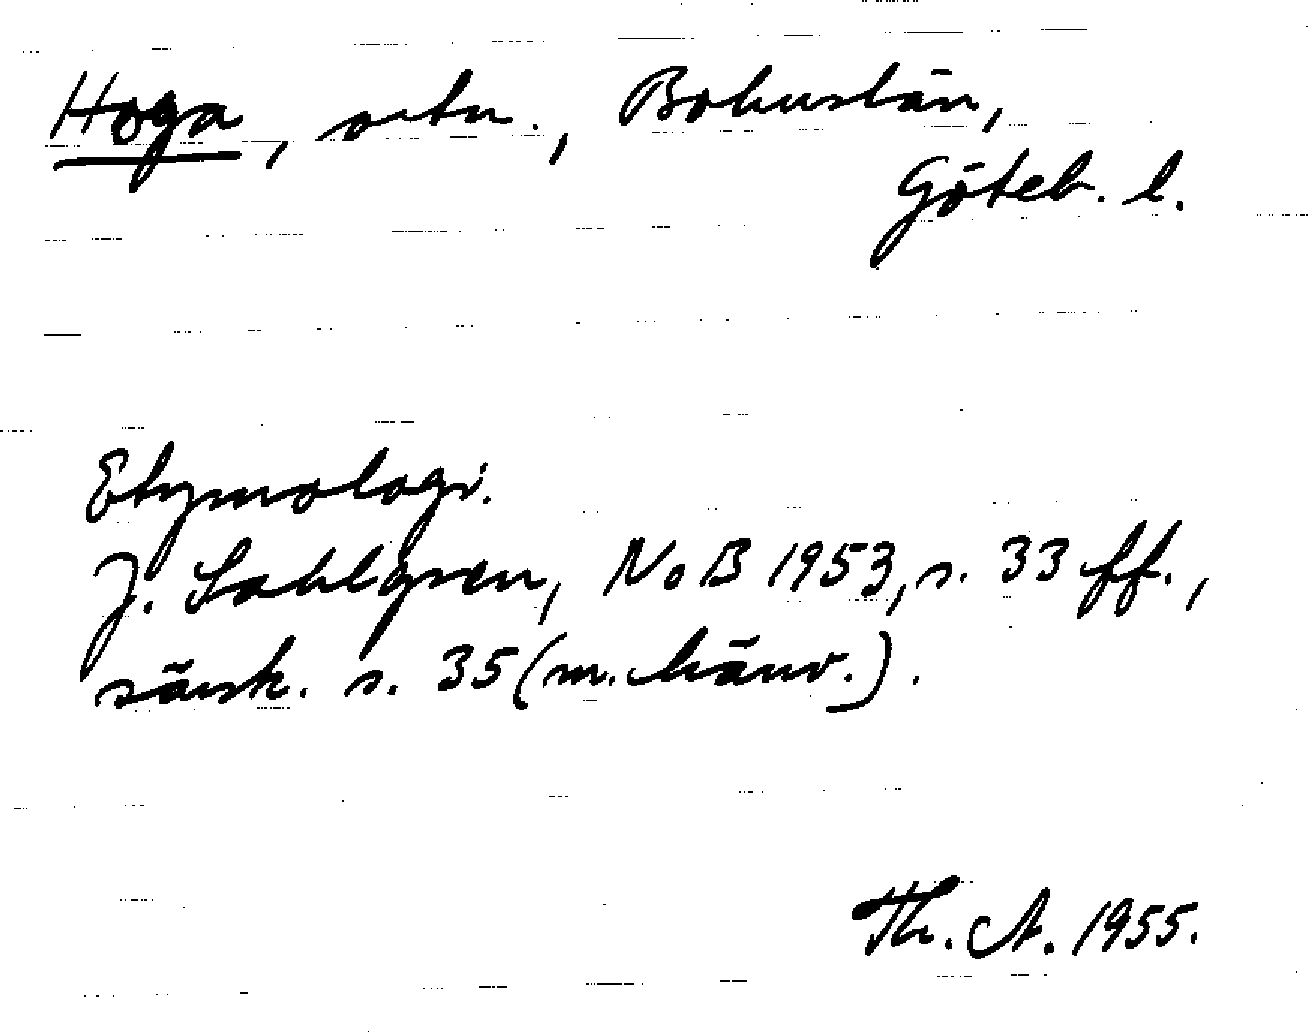 Hoga, ortn., Bohuslän,
Göteb. l.
Etymologi.
J. Sahlgren, NoB 1953, s. 33 ff.,
särsk. s. 35 (m. hänv.).
Th. A. 1955.